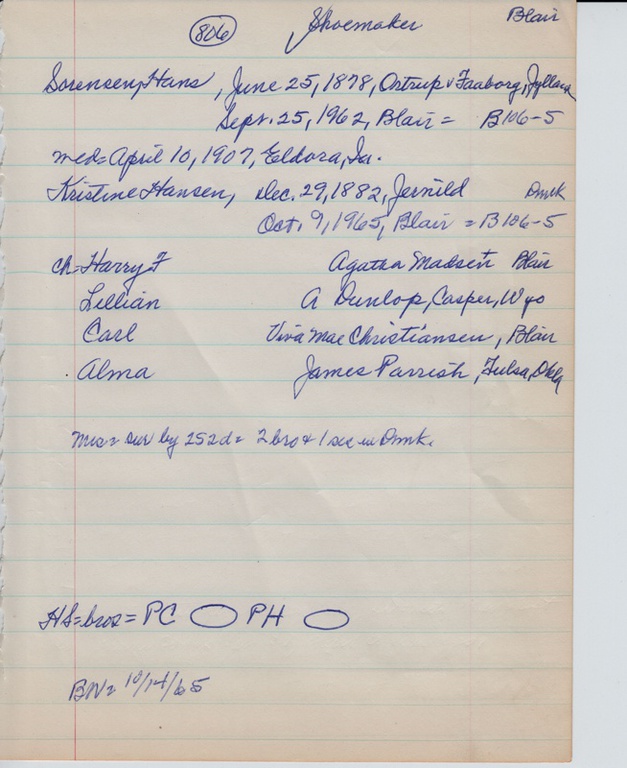 806 Shoemaker Blair
Sorensen, Hans, June 25, 1878, Ostrup v Faaborg, Jylland
Sept. 25, 1962, Blair = B106-5
med = April 10, 1907, Eldora, Ia.
Kristine Hansen, Dec. 29, 1882, Jernild Dmk
Oct. 9, 1965, Blair = B106-5
ch = Harry F Agatha Madsen Blair
Lillian A Dunlop, Casper, Wyo
Carl Viva Mae Christiansen, Blair
Alma James Parrish, Tulsa, Okla
Mrs = sur by 2s 2d = 2 bro & 1 sis in Dmk.
HS = bros = PC PH
BN = 10/14/65